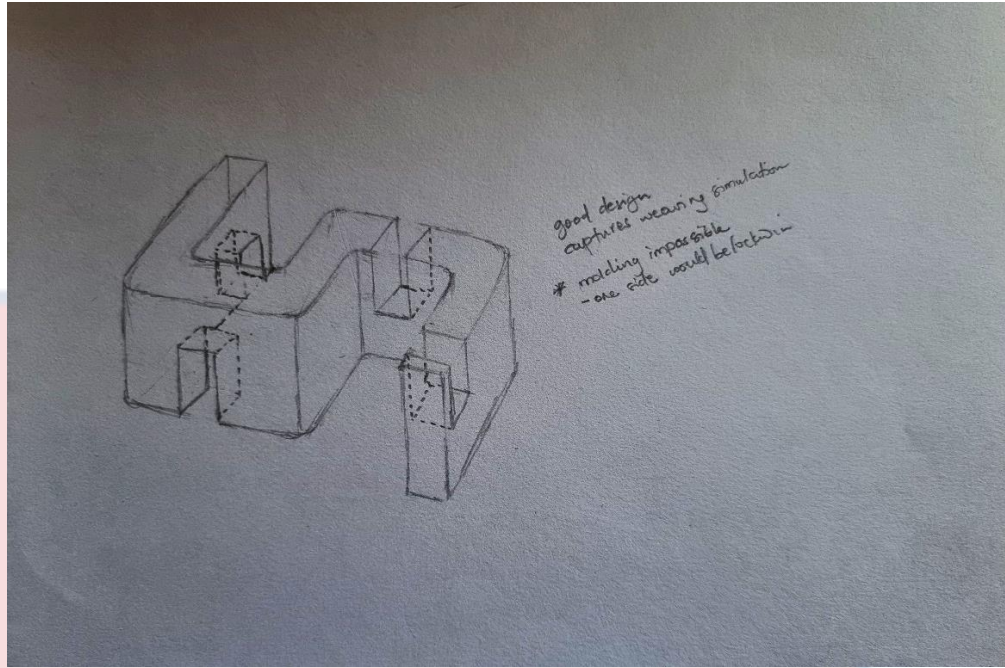 good design
captures weaving simulation
* molding impossible
- one side would be locked in